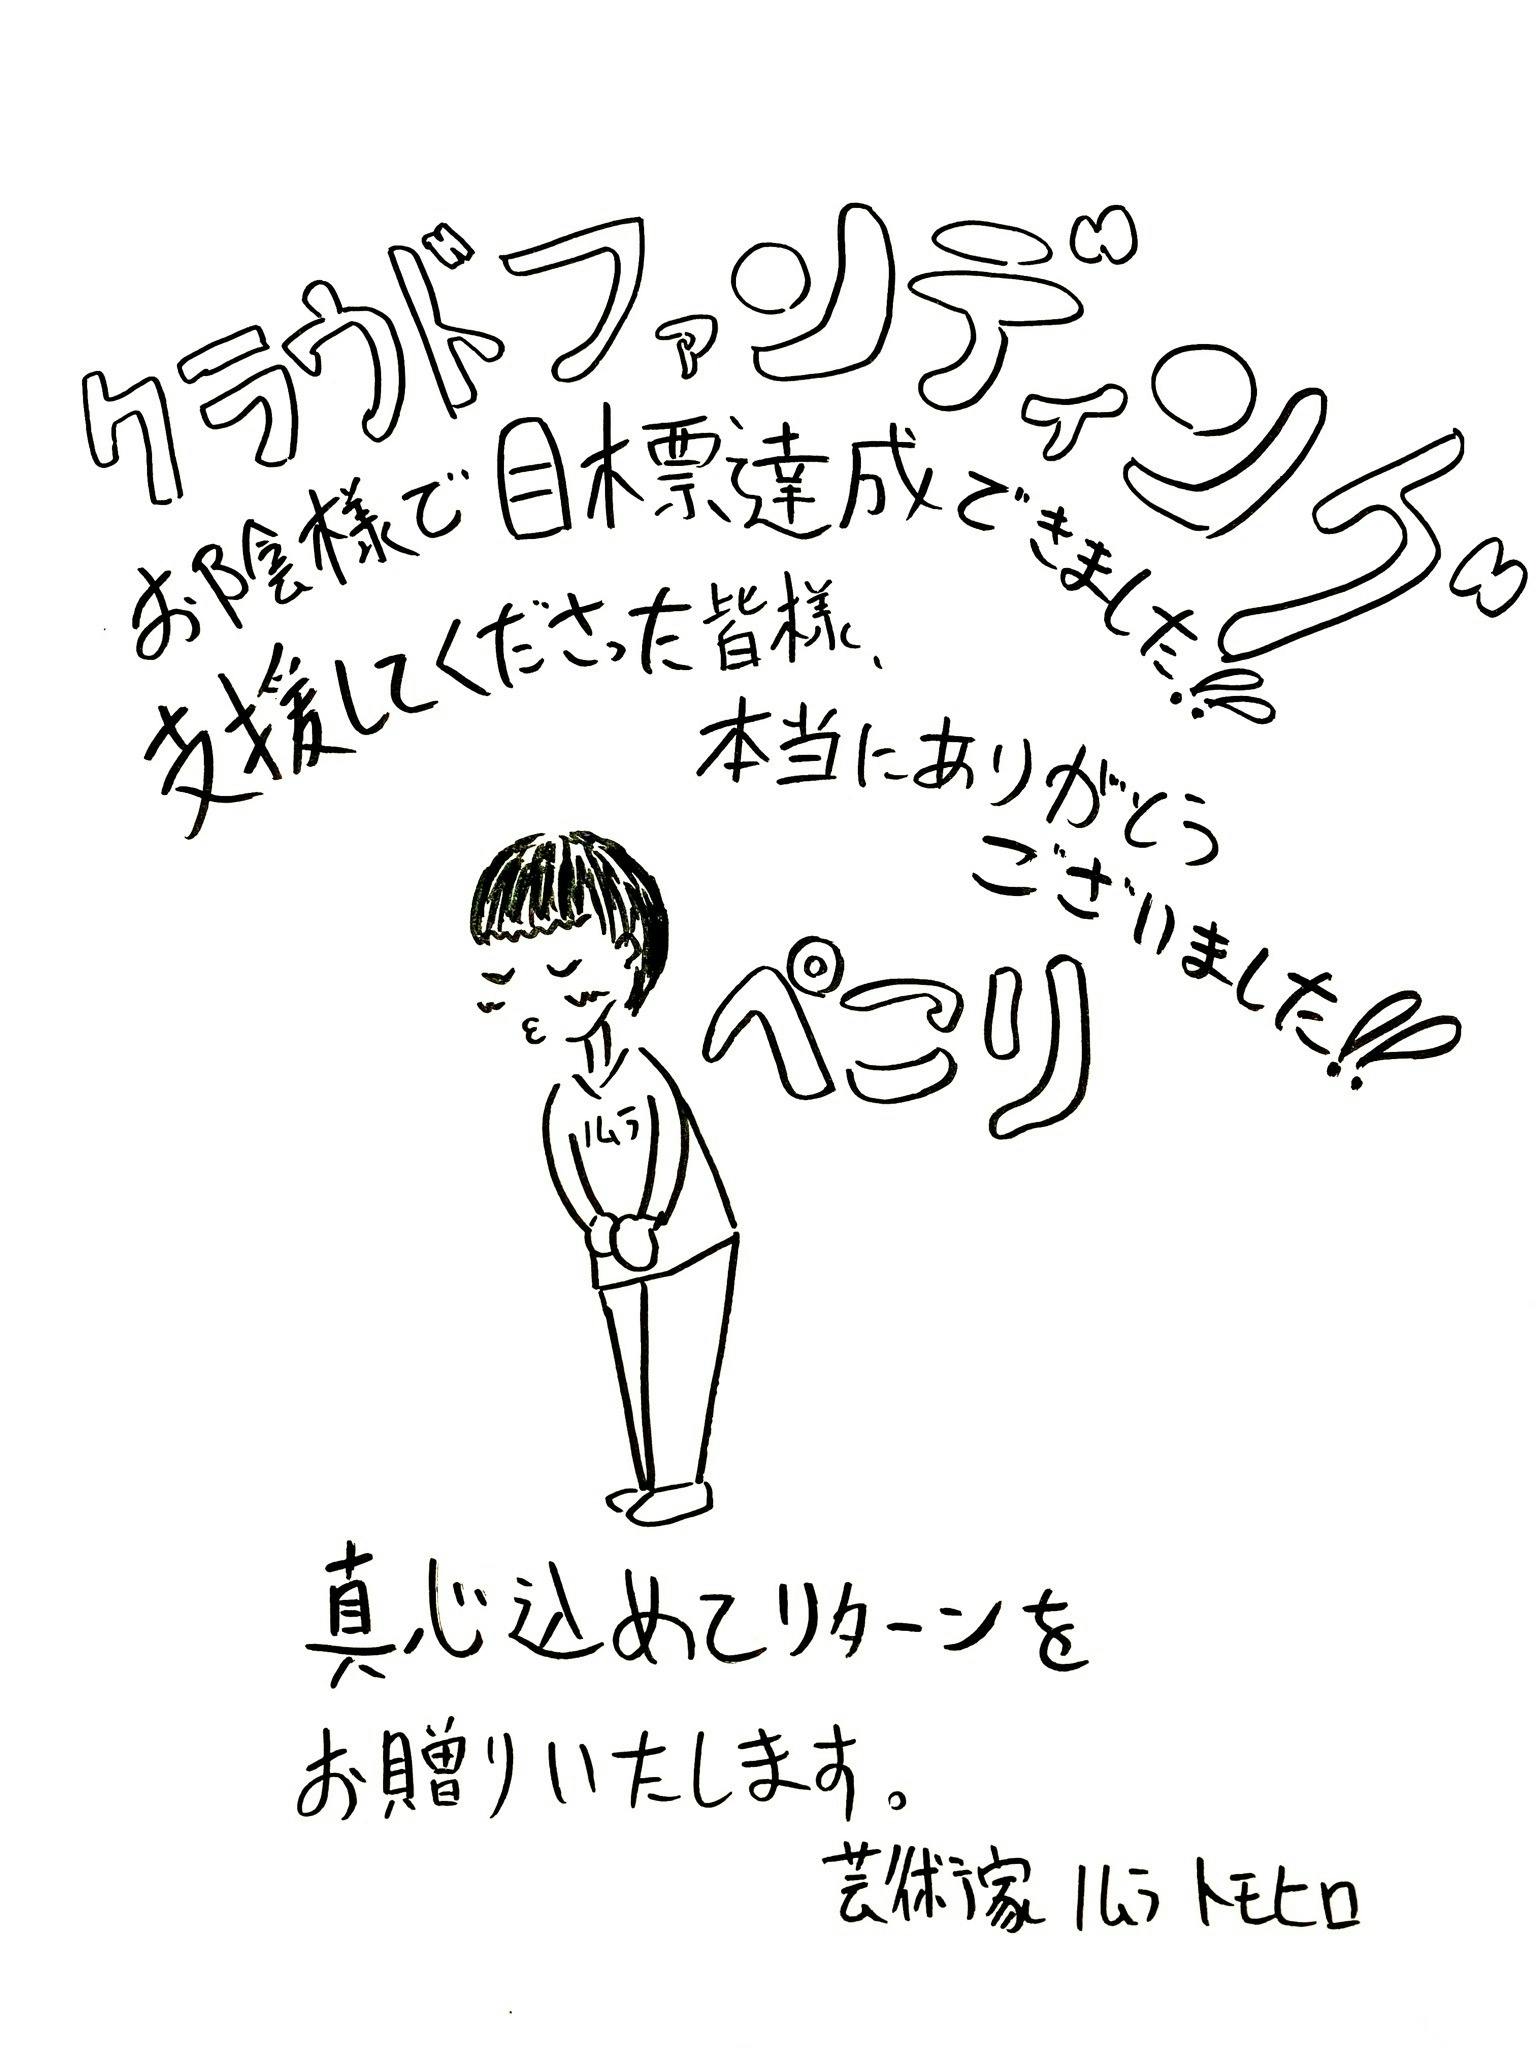 クラウドファンディング
お陰様で目標達成できました!!
支援してくださった皆様、
本当にありがとう
ございました!!
ぺこり
真心込めてリターンを
お贈りいたします。
芸術家 トモヒロ